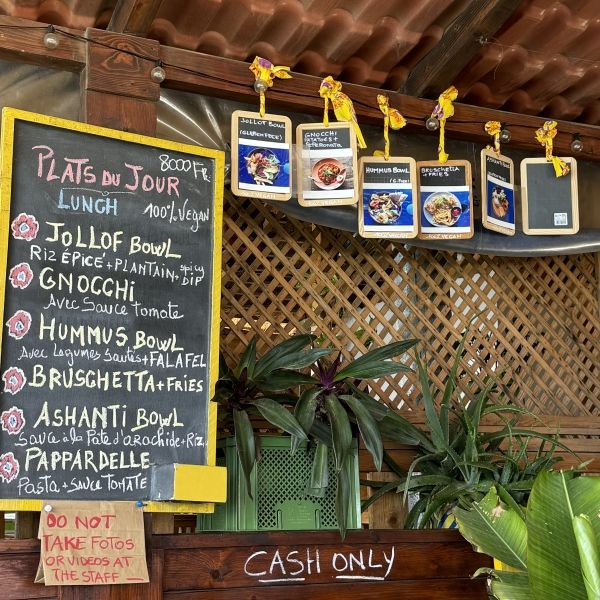 PLATS DU JOUR
8000 Fr
LUNCH
100% Vegan
JOLLOF BOWL
RIZ ÉPICÉ + PLANTAIN + spicy DIP
GNOCCHI
Avec Sauce Tomate
HUMMUS BOWL
Avec Legumes Sautés + FALAFEL
BRUSCHETTA + FRIES
ASHANTI BOWL
Sauce à la Pate d'arachide + Riz
PAPPARDELLE
Pasta + SAUCE TOMATE
DO NOT
TAKE FOTOS
OR VIDEOS AT
THE STAFF
JOLLOF BOWL
GNOCCHI
HUMMUS BOWL
BRUSCHETTA
+ FRIES
CASH ONLY